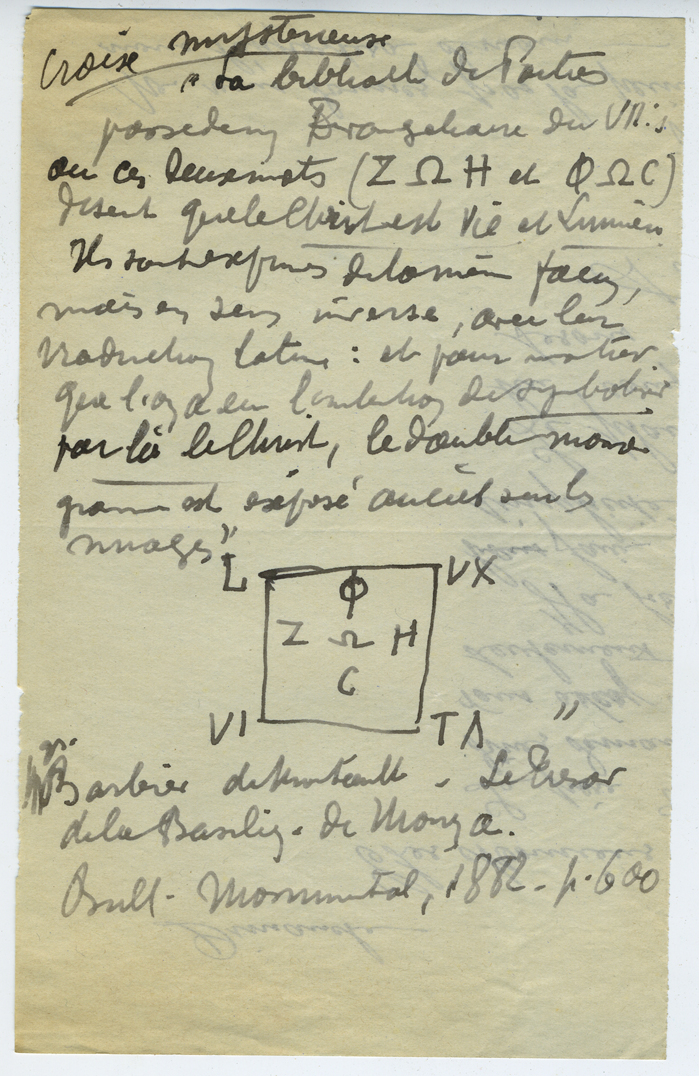 Croix mystérieuse
"La biblioth de Poitiers
possède un Evangéliaire du VIIIe s
où ces deux mots (Z Ω H et Φ Ω C)
disent que le Christ est Vie et Lumière
Ils sont exprimés de la même façon,
mais en sens inverse, avec leur
traduction latine : et pour montrer
que l'on a eu l'intention de symboliser
par là le Christ, le double mono
gramme est exposé au ciel sur les
nuages"
L VX
Φ
Z Ω H
C
VI TA "
Mgr. Barbier de Montault - Le Trésor
de la Basiliq. de Monza.
Bull. Monumental, 1882 - p. 600